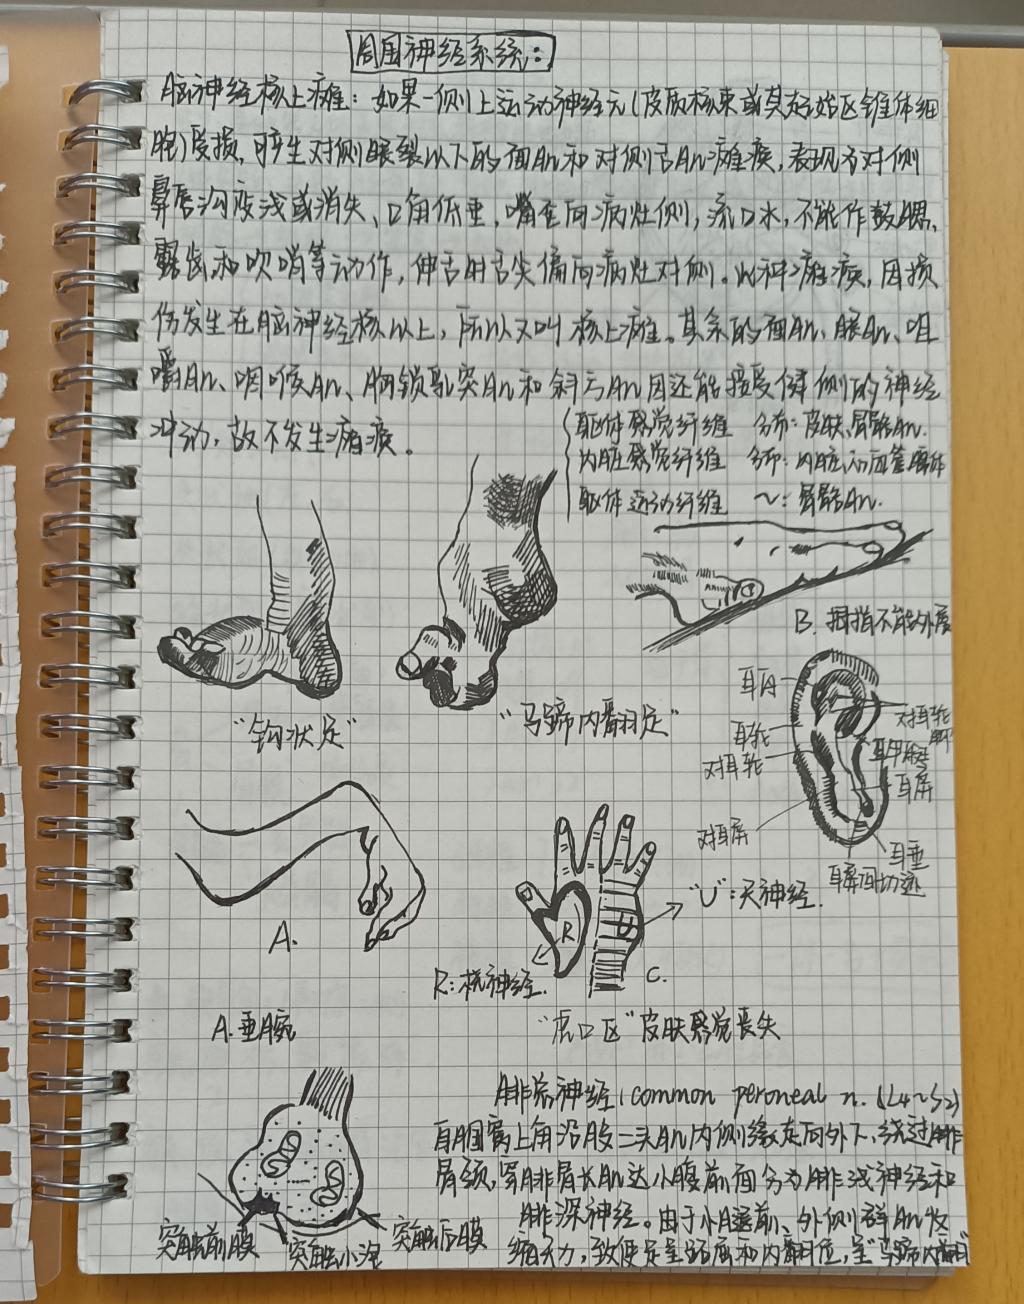 周围神经系统：
脑神经核上瘫：如果一侧上运动神经元（皮质核束或其起始区锥体细
胞）受损，可产生对侧眼裂以下的面An和对侧舌An瘫痪，表现为对侧
鼻唇沟变浅或消失、口角低垂，嘴歪向病灶侧，流口水，不能作鼓腮、
露齿和吹哨等动作，伸舌时舌尖偏向病灶对侧。此种瘫痪，因损
伤发生在脑神经核以上，所以又叫核上瘫。其余的面An、眼An、咀
嚼An、咽喉An、胸锁乳突An和斜方An因还能接受健侧的神经
冲动，故不发生瘫痪。
躯体感觉纤维 分布：皮肤、骨骼An.
内脏感觉纤维 分布：内脏、心血管、腺体
躯体运动纤维 ～：骨骼An.
B. 拇指不能外展
“钩状足”
“马蹄内翻足”
耳舟
耳轮
对耳轮
对耳屏
对耳轮
耳甲腔
耳屏
耳垂
耳屏间切迹
A.
R
U
“U”：尺神经.
R：桡神经.
C.
A. 垂腕
“虎口区”皮肤感觉丧失
腓总神经（common peroneal n.（L4~S2）
自腘窝上角沿股二头An内侧缘走向外下，绕过腓
骨颈，穿腓骨长肌达小腿前面分为腓浅神经和
腓深神经。由于小腿前、外侧群An收
缩无力，致使足呈跖屈和内翻位，呈“马蹄内翻
突触前膜
突触小泡
突触后膜